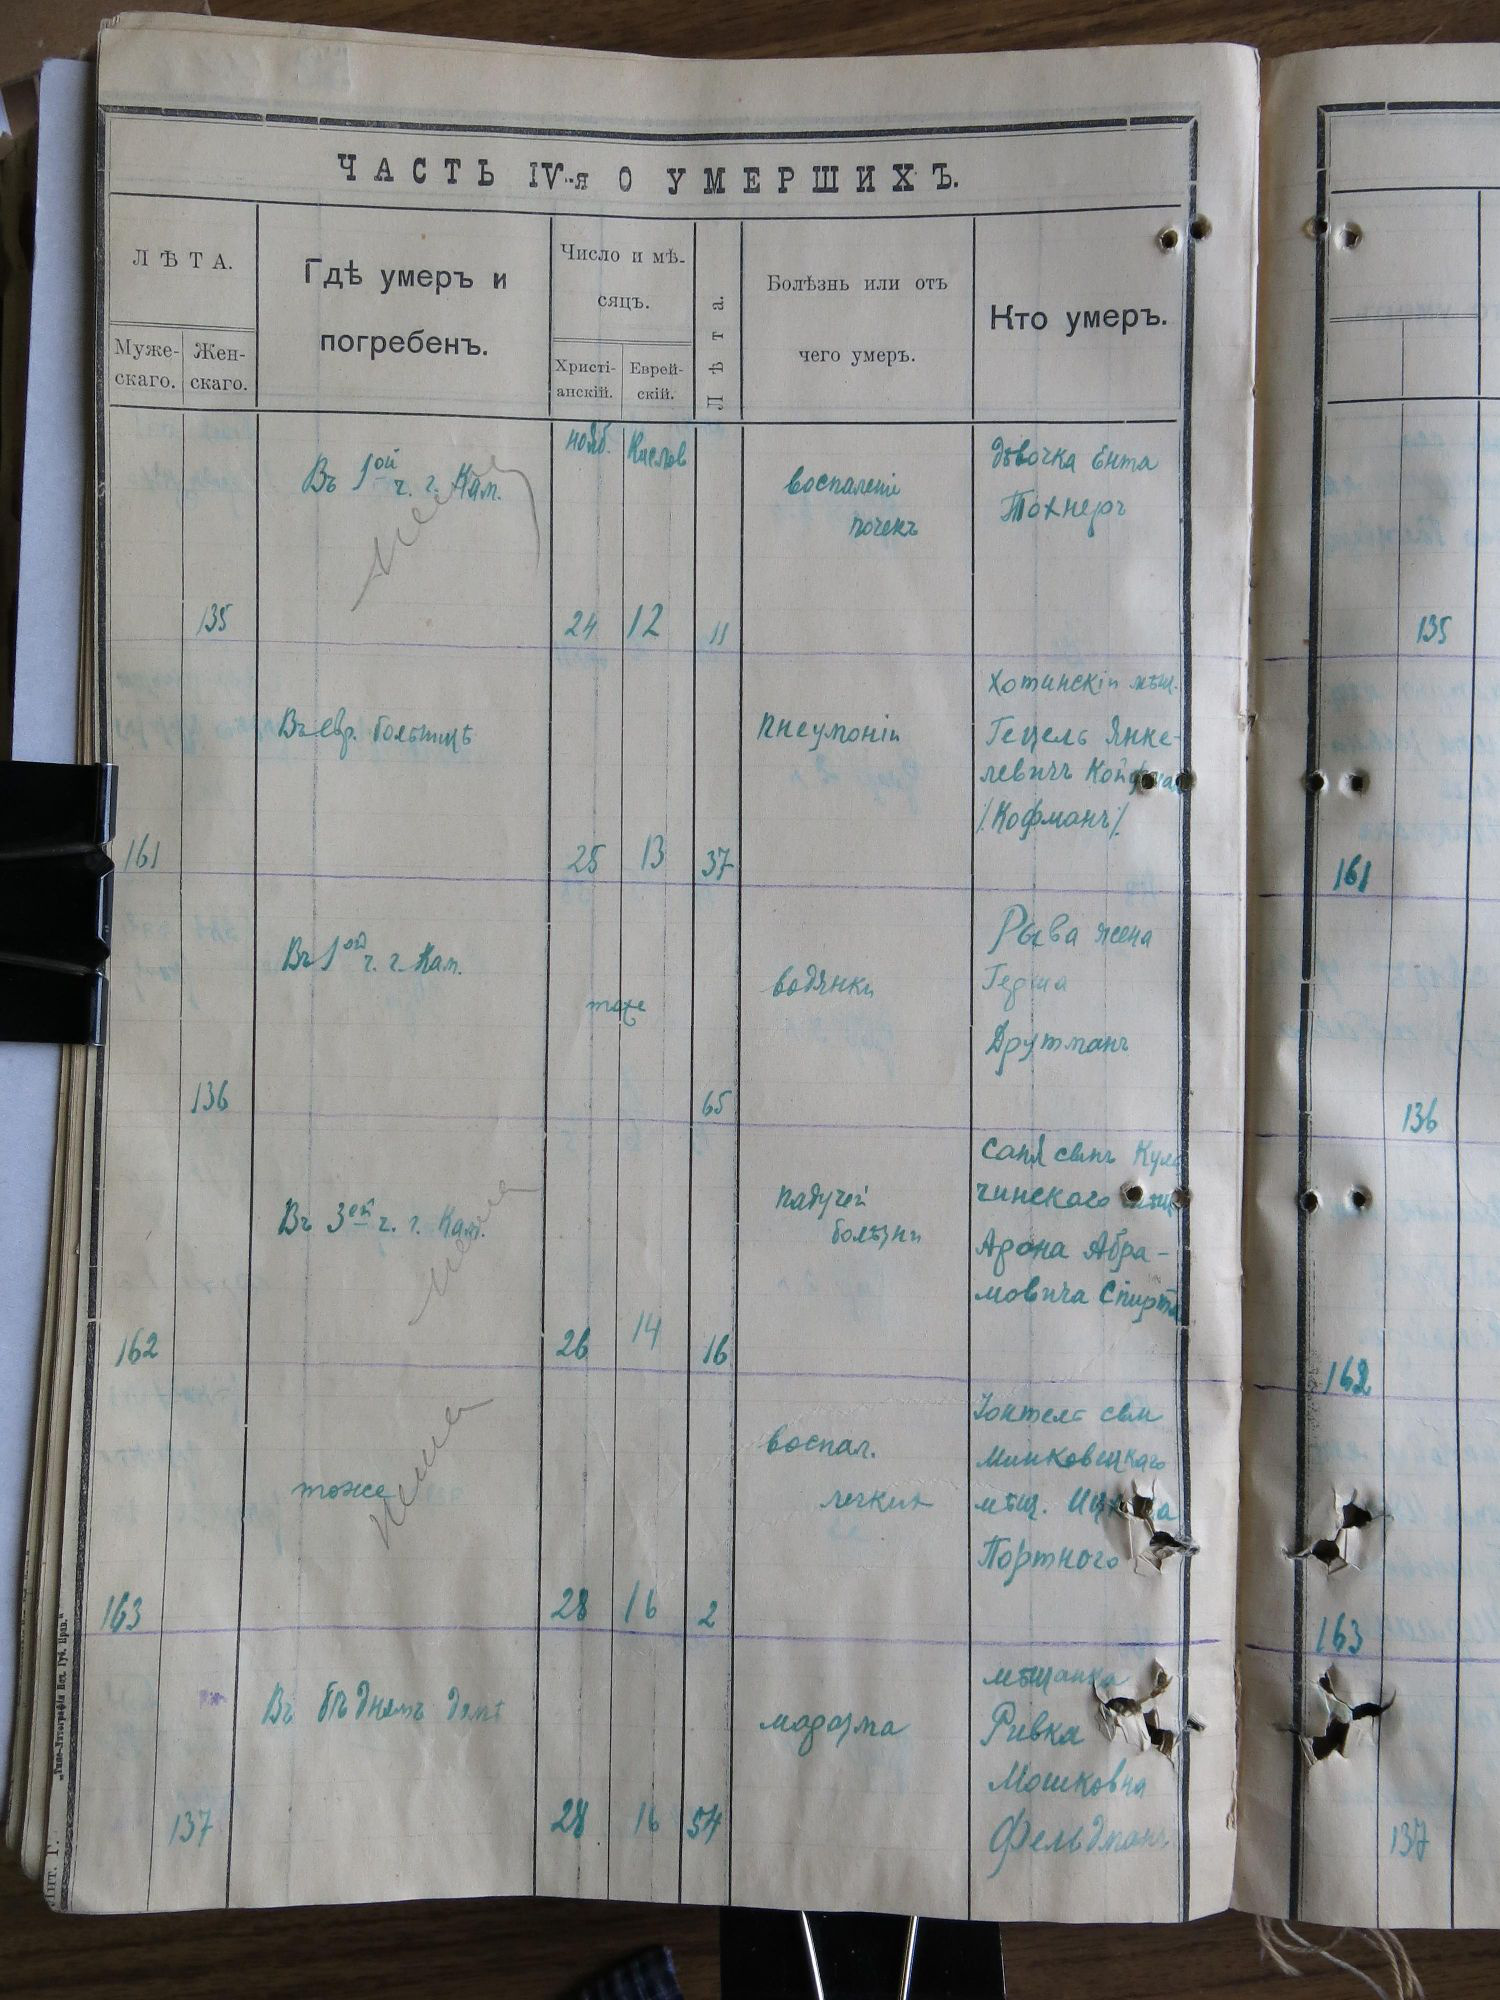 ЧАСТЬ IV-я О УМЕРШИХЪ.
ЛѢТА.
Муже-
скаго.
Жен-
скаго.
Гдѣ умеръ и
погребенъ.
Число и мѣ-
сяцъ.
Христі-
анскій.
Еврей-
скій.
Лѣта.
Болѣзнь или отъ
чего умеръ.
Кто умеръ.
135
Въ 1ой ч. г. Кам.
нояб.
24
Кислев
12
11
воспаленіе
почекъ
дѣвочка Ента
Тохнеръ
135
161
Въ евр. больницѣ
25
13
37
пневмоніи
Хотинскій мѣщ.
Гецель Янке-
левичъ
/Кофманъ/
161
136
Въ 1ой ч. г. Кам.
тоже
65
водянки
жена
Герша
Друтманъ
136
162
Въ 3ей ч. г. Кам.
26
14
16
падучей
болѣзни
сынъ
чинскаго
Арона Абра-
мовича
162
163
тоже
28
16
2
воспал.
легкихъ
сынъ
Миньковецкаго
мѣщ.
Портного
163
137
Въ бѣдномъ домѣ
28
16
54
мѣщанка
Ривка
Мошковна
Фельдманъ
137
Лит. Г.